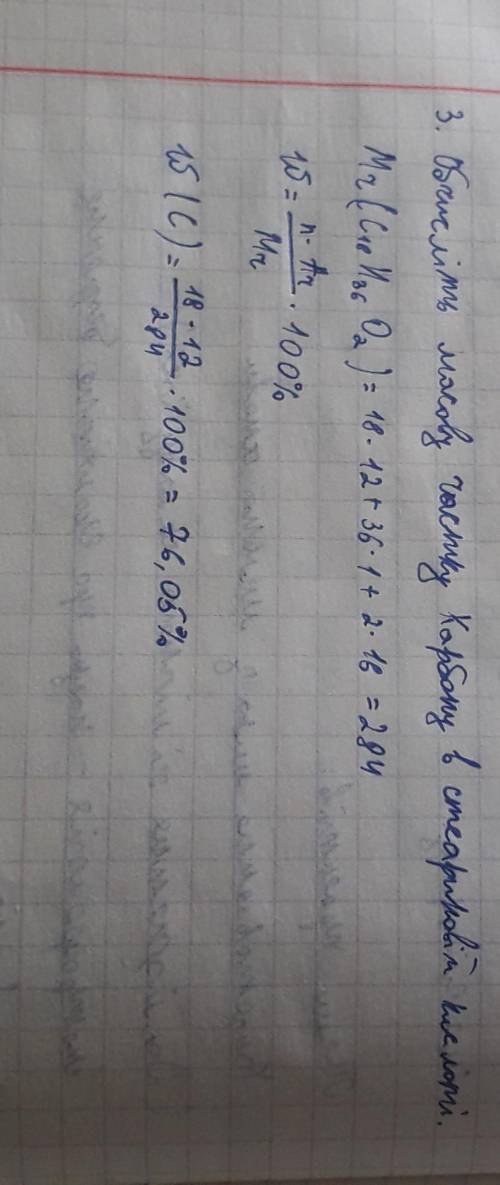 3. Обчисліть масову частку Карбону в стеариновій кислоті.
Mr(C₁₈H₃₆O₂) = 18·12+36·1+2·16 = 284
W = n·Ar/Mr · 100%
W(C) = 18·12/284 · 100% = 76,05%